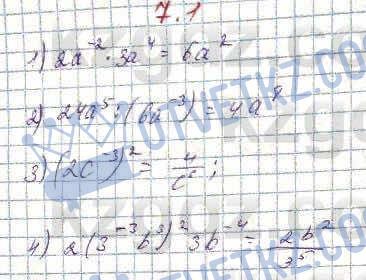 7.1
1) 2a⁻² · 3a⁴ = 6a²
2) 24a⁵ : (6a⁻³) = 4a⁸
3) (2c⁻³)² = 4/c⁶ ;
4) 2(3⁻³b³)² 3b⁻⁴ = 2b²/3⁵
OTVETKZ.COM